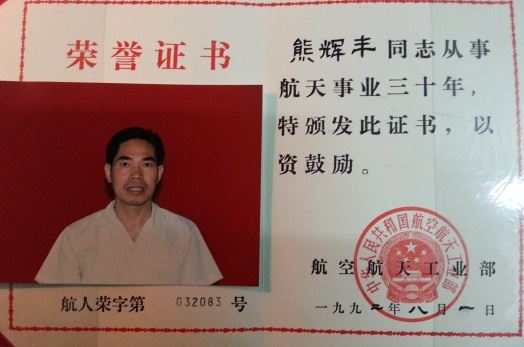 荣誉证书
航人荣字第 032083 号
熊辉丰同志从事
航天事业三十年，
特颁发此证书，以
资鼓励。
中华人民共和国航空航天工业部
航空航天工业部
一九九二年八月一日